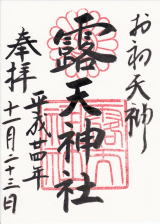 お初天神
露天神社
奉拝
平成廿四年
十一月二十三日